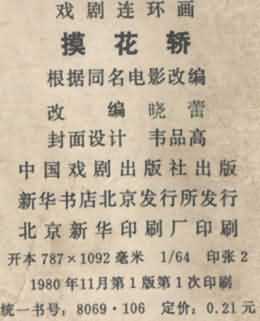 戏剧连环画
摸花轿
根据同名电影改编
改 编 晓蕾
封面设计 韦品高
中国戏剧出版社出版
新华书店北京发行所发行
北京新华印刷厂印刷
开本787×1092毫米 1/64 印张2
1980年11月第1版第1次印刷
统一书号：8069·106 定价：0.21元